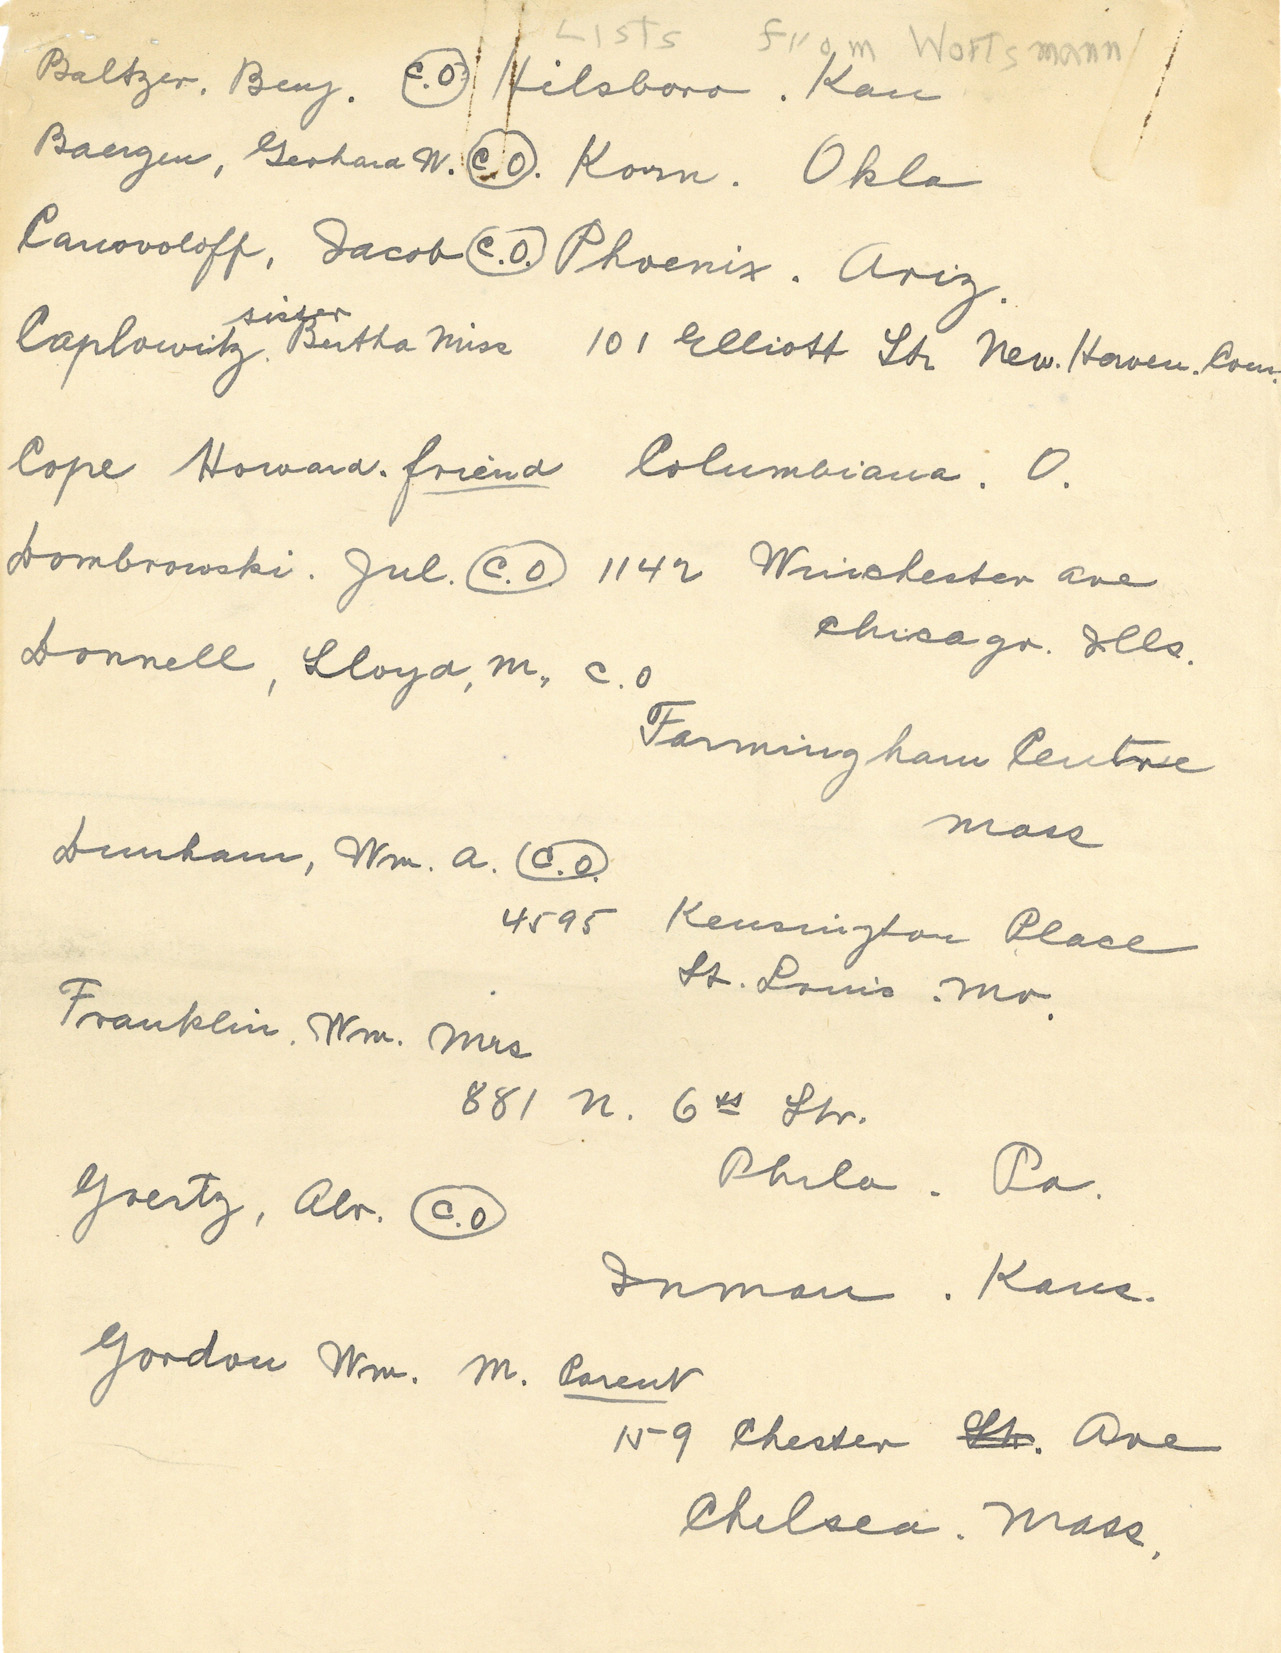 Lists from Wortsmann
Baltzer. Benj. C.O. Hilsboro. Kan
Baergen, Gerhard W. C.O. Korn. Okla
Canovoloff, Jacob C.O. Phoenix. Ariz.
sister
Caplowitz. Bertha Miss 101 Elliott Str New. Haven. Conn.
Cope Howard. friend Columbiana. O.
Dombrowski. Jul. C.O 1142 Winchester ave
Chicago. Ills.
Donnell, Lloyd, M., C.O
Farmingham Centre
Mass
Dunham, Wm. A. C.O.
4595 Kensington Place
St. Louis. Mo.
Franklin. Wm. Mrs
881 N. 6th Str.
Phila. Pa.
Goertz, Abr. C.O
Inman. Kans.
Gordon Wm. M. Parent
159 Chester Str. Ave
Chelsea. Mass.